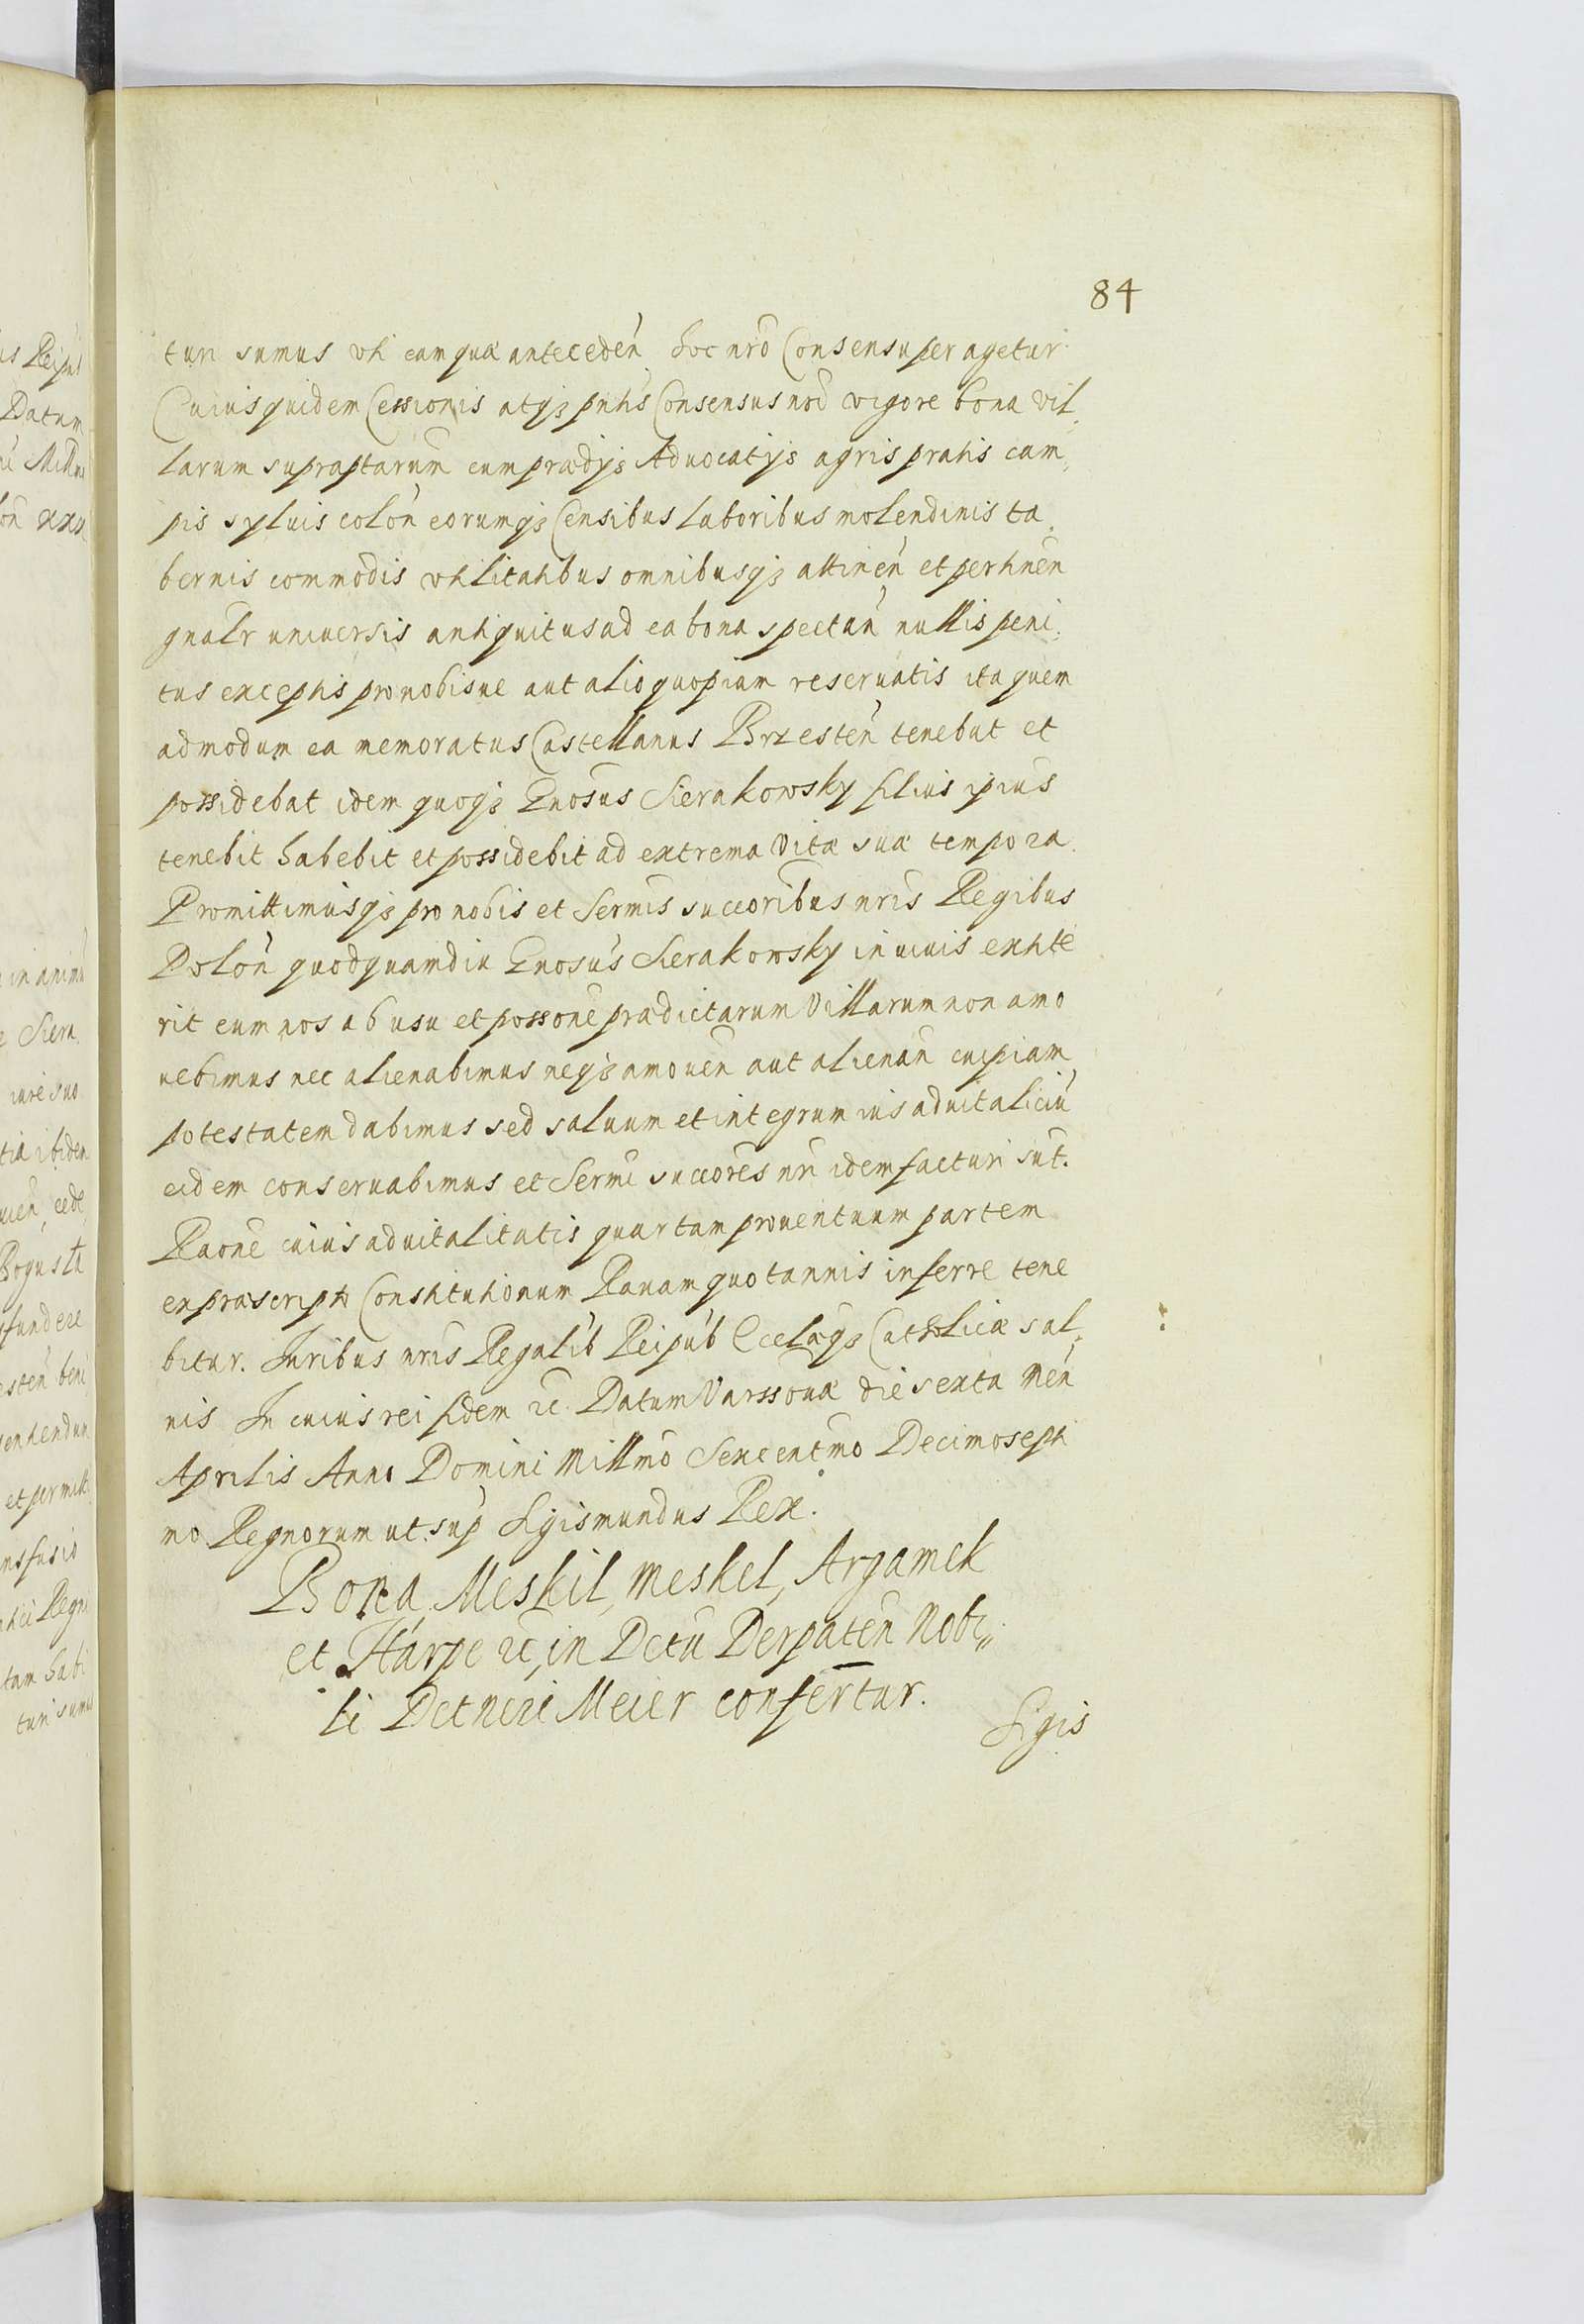 84
turi sumus uti eam quæ anteceden̄ hoc nr̄o Consensu peragetur
Cuius quidem Cessionis atq₃ pn̄tis Consensus nr̄i vigore bona vil„
larum supraptarum̄ cum prædijs Aduocatijs agris pratis cam„
pis syluis colon̄ eorumq₃ Censibus laboribus molendinis ta„
bernis commodis utilitatibus omnibusq₃ attinen̄ et pertinen̄
gn̄alr uniuersis antiquitus ad ea bona spectan̄ nullis peni„
tus exceptis pro nobisue aut alio quopiam reseruatis ita quem
admodum ea memoratus Castellanus Brzesten̄ tenebat et
possidebat idem quoq₃ Gnosus Sierakowsky filius ipius̄
tenebit habebit et possidebit ad extrema vitæ suæ tempora.
Promittimusq₃ pro nobis et Sermis̄ succoribus̄ nr̄is Regibus
Polon̄ quod quamdiu Gnosus̄ Sierakowsky in uiuis extite
rit eum nos ab usu et possonē prædictarum Villarum non amo
uebimus nec alienabimus neq₃ amouen̄ aut alienan̄ cuipiam
potestatem dabimus sed saluum et integrum ius aduitaliciū
eidem conseruabimus et Sermi̅ succores̄ nr̄i idem facturi sūt.
Raone̅ cuius aduitalitatis quartam prouentuum partem
ex præscripto Constitutionum Rauam quotannis inferre tene
bitur. Juribus nr̄is Regalib̄ Reipub̄ Eccl̄æq₃ Catholicæ sal„
uis In cuius rei fidem ꝛc. Datum Varssouiæ die sexta Men̄
Aprilis Anno Domini Millmo̅ Sexcentmo̅ Decimosepti
mo Regnorum ut sup̄ Sigismundus Rex.
Bona Meskil, Meskel, Argamek
et Harpe ꝛc, in Dctū Derpaten̄ Nobi„
li Detneri Meier confertur.
Sigis